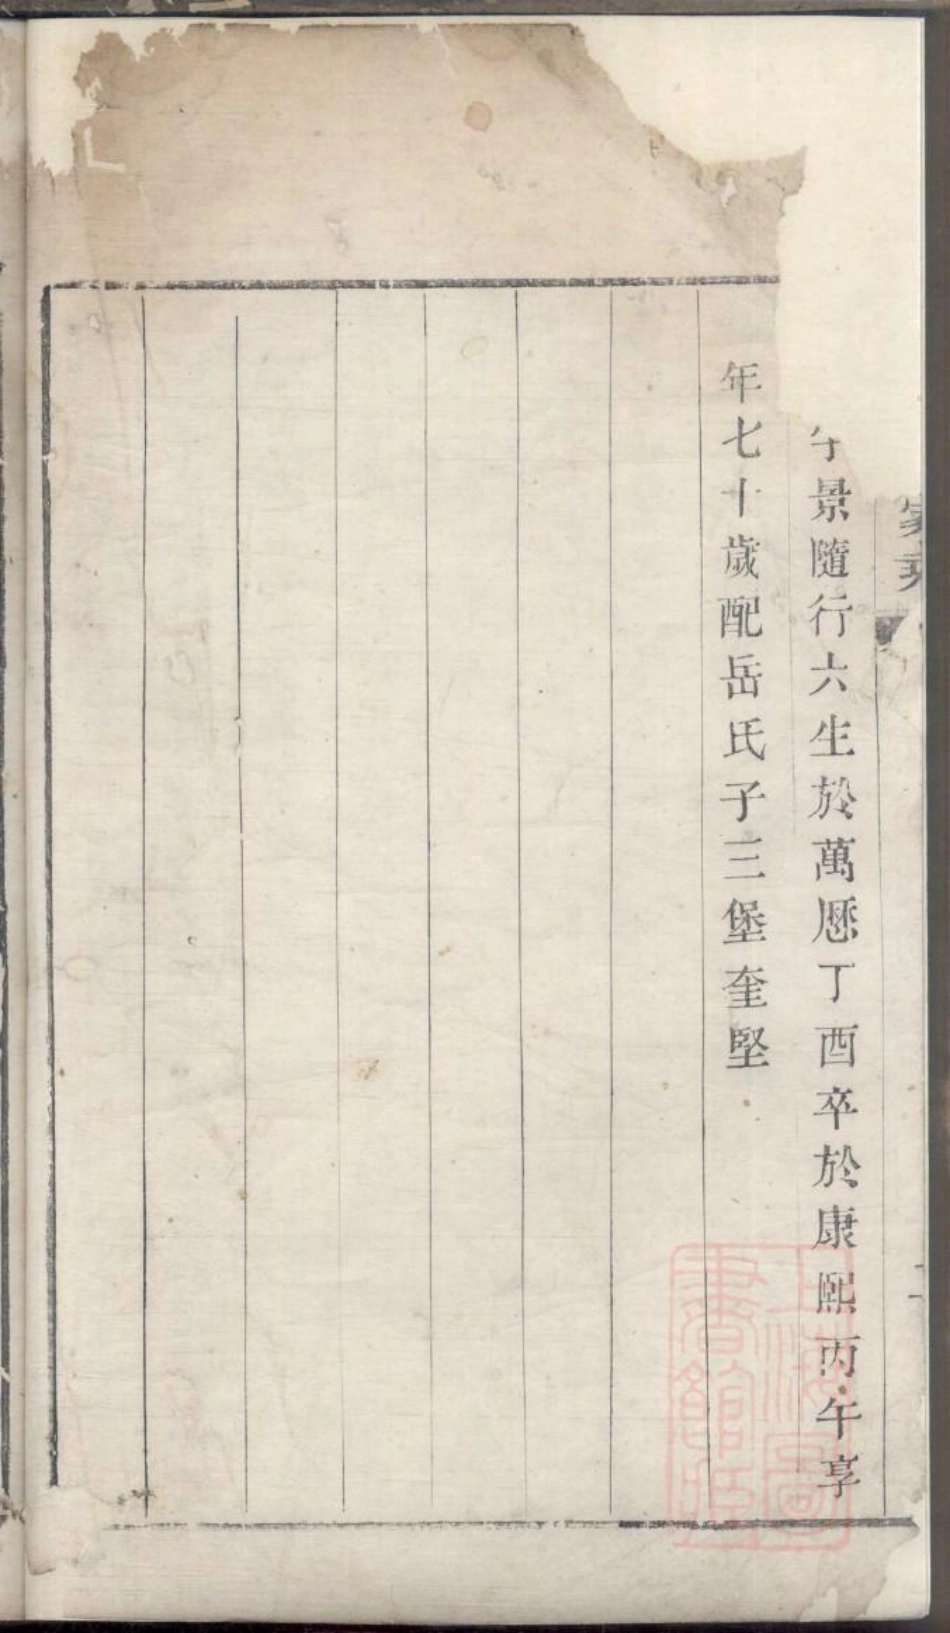 字景隨行六生於萬厯丁酉卒於康熙丙午享
年七十歲配岳氏子三堡奎堅
上海圖
書館藏